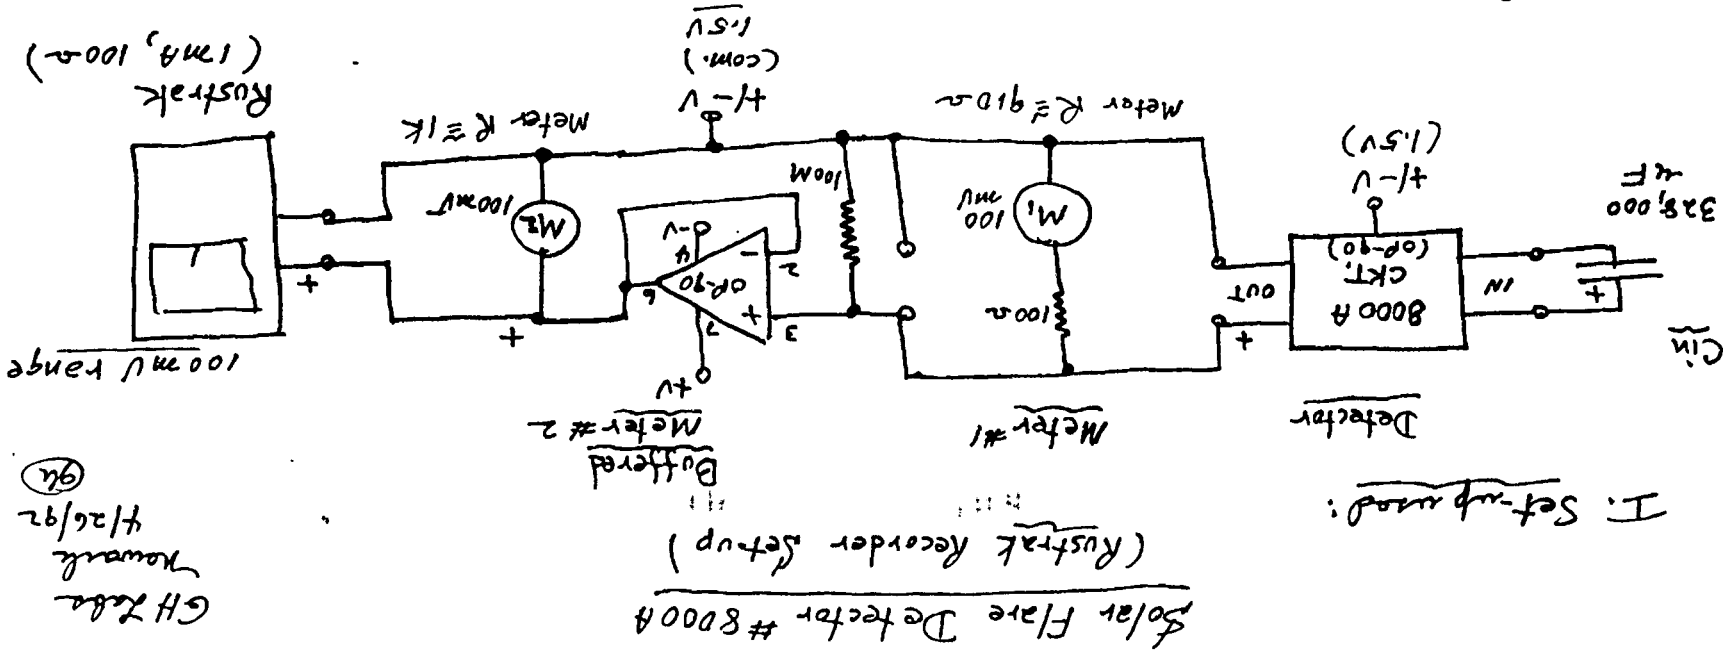 Solar Flare Detector #8000A
(Rustrak Recorder Set-up)
GH Labs
Newark
4/26/92
I. Set-up used:
Detector
Meter #1
Buffered
Meter #2
100mV range
Cin
328,000
µF
+
IN
8000A
CKT.
(OP-90)
+/-V
(1.5V)
+
OUT
100Ω
M1
100
mV
Meter R ≅ 910Ω
100M
3
2
+
-
OP-90
7
+V
4
-V
6
+/-V
(com.)
1.5V
+
M2
100mV
Meter R ≅ 1K
+
Rustrak
(1mA, 100Ω)